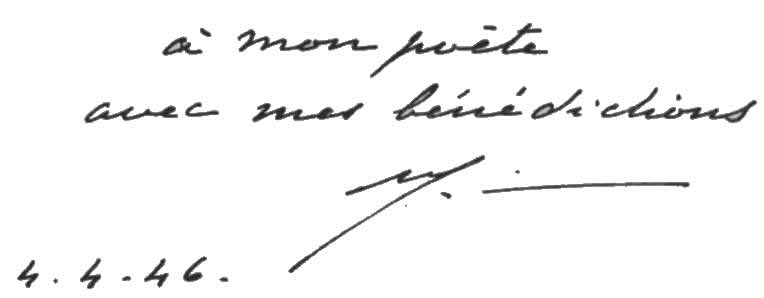 à mon poète
avec mes bénédictions
4.4.46.